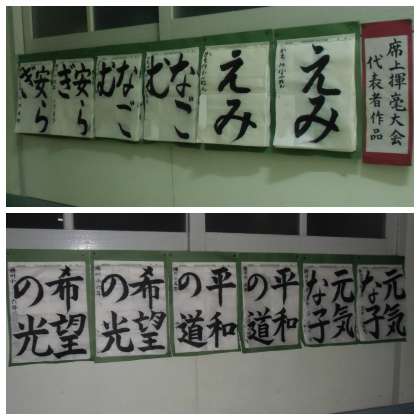 席上揮毫大会
代表者作品
えみ
えみ
なご
む
なご
む
安ら
ぎ
安ら
ぎ
元気
な子
元気
な子
平和
の道
平和
の道
希望
の光
希望
の光